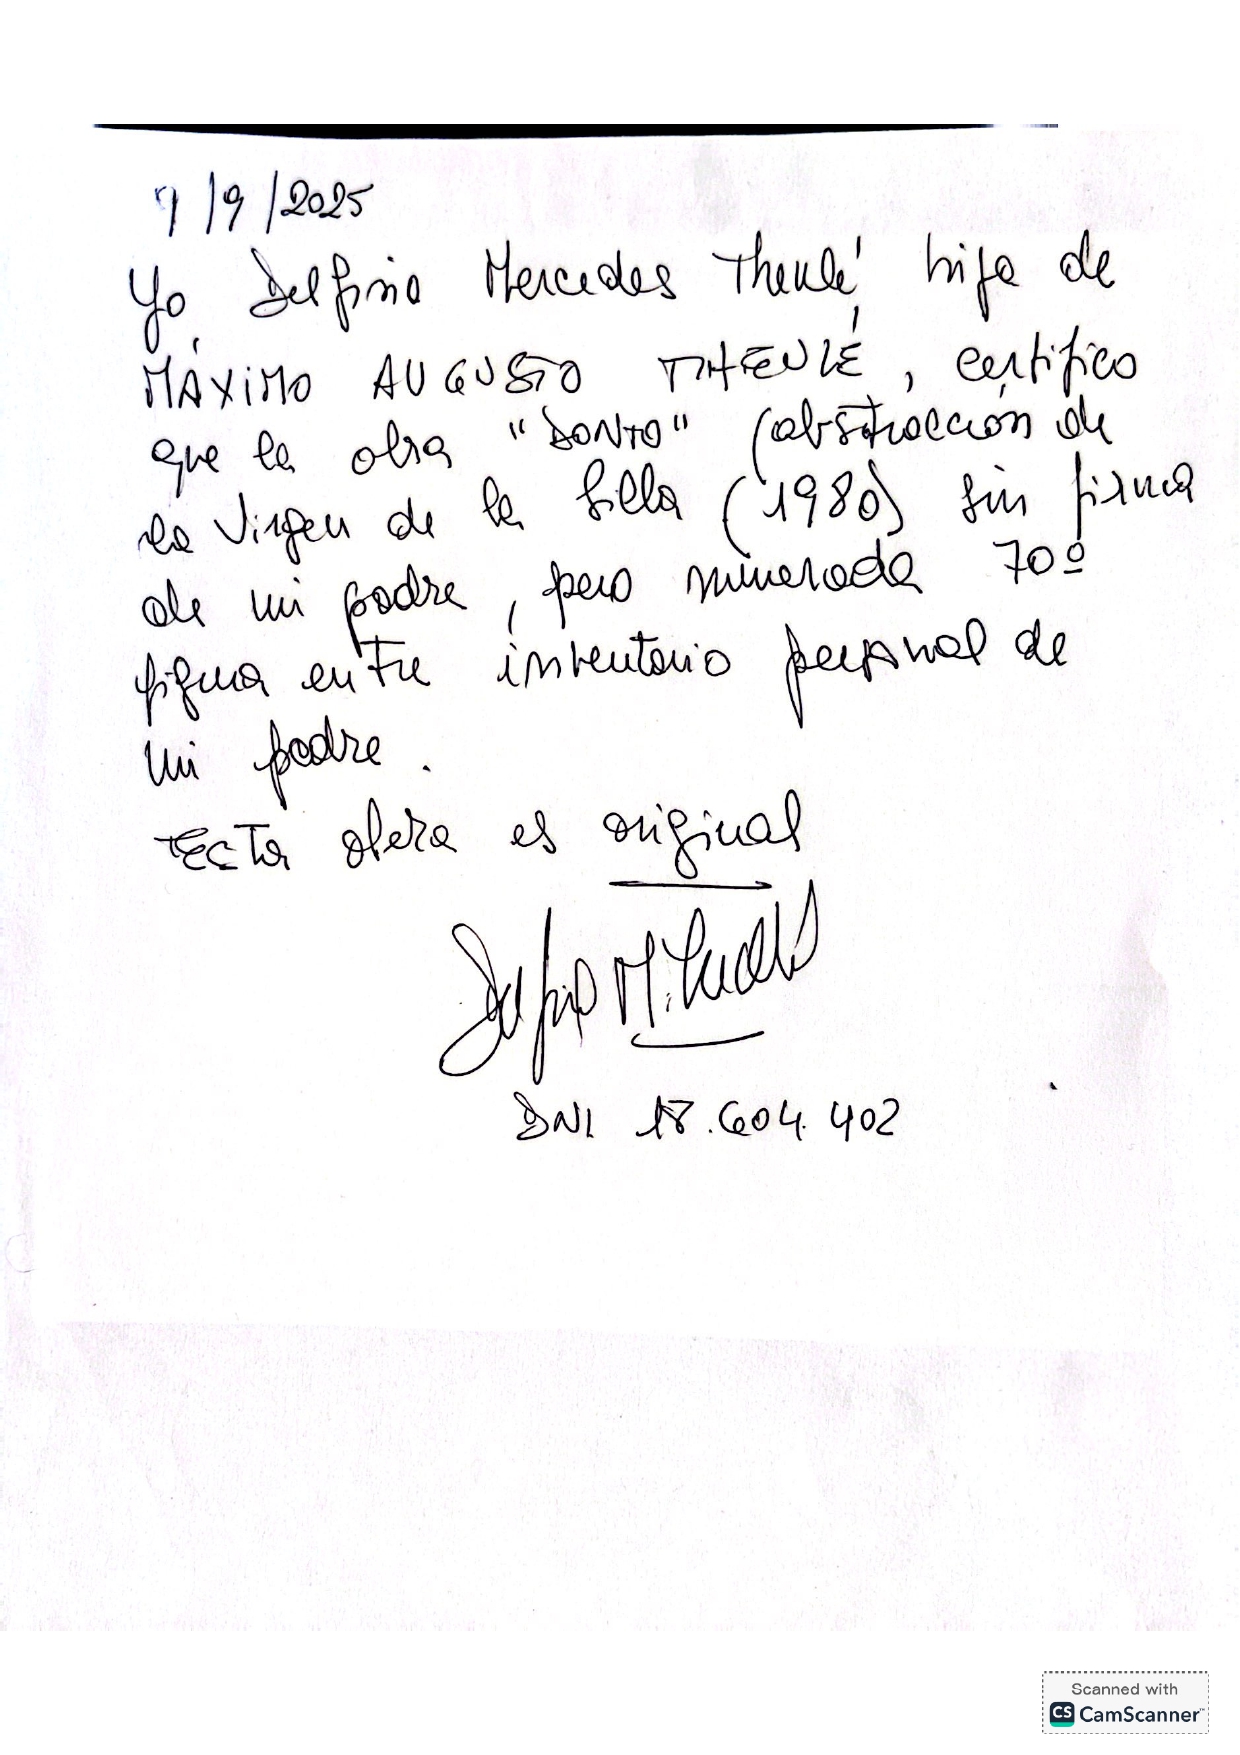 7/9/2025
Yo, Delfina Mercedes Theulé hija de
MÁXIMO AUGUSTO THEULÉ, certifico
que la obra "TONTO" (abstracción de
la Virgen de la Silla (1980) sin firma
de mi padre, pero numerada 70º
figura entre inventario personal de
mi padre.
Esta obra es original
DNI 18.604.402
Scanned with
CS CamScanner